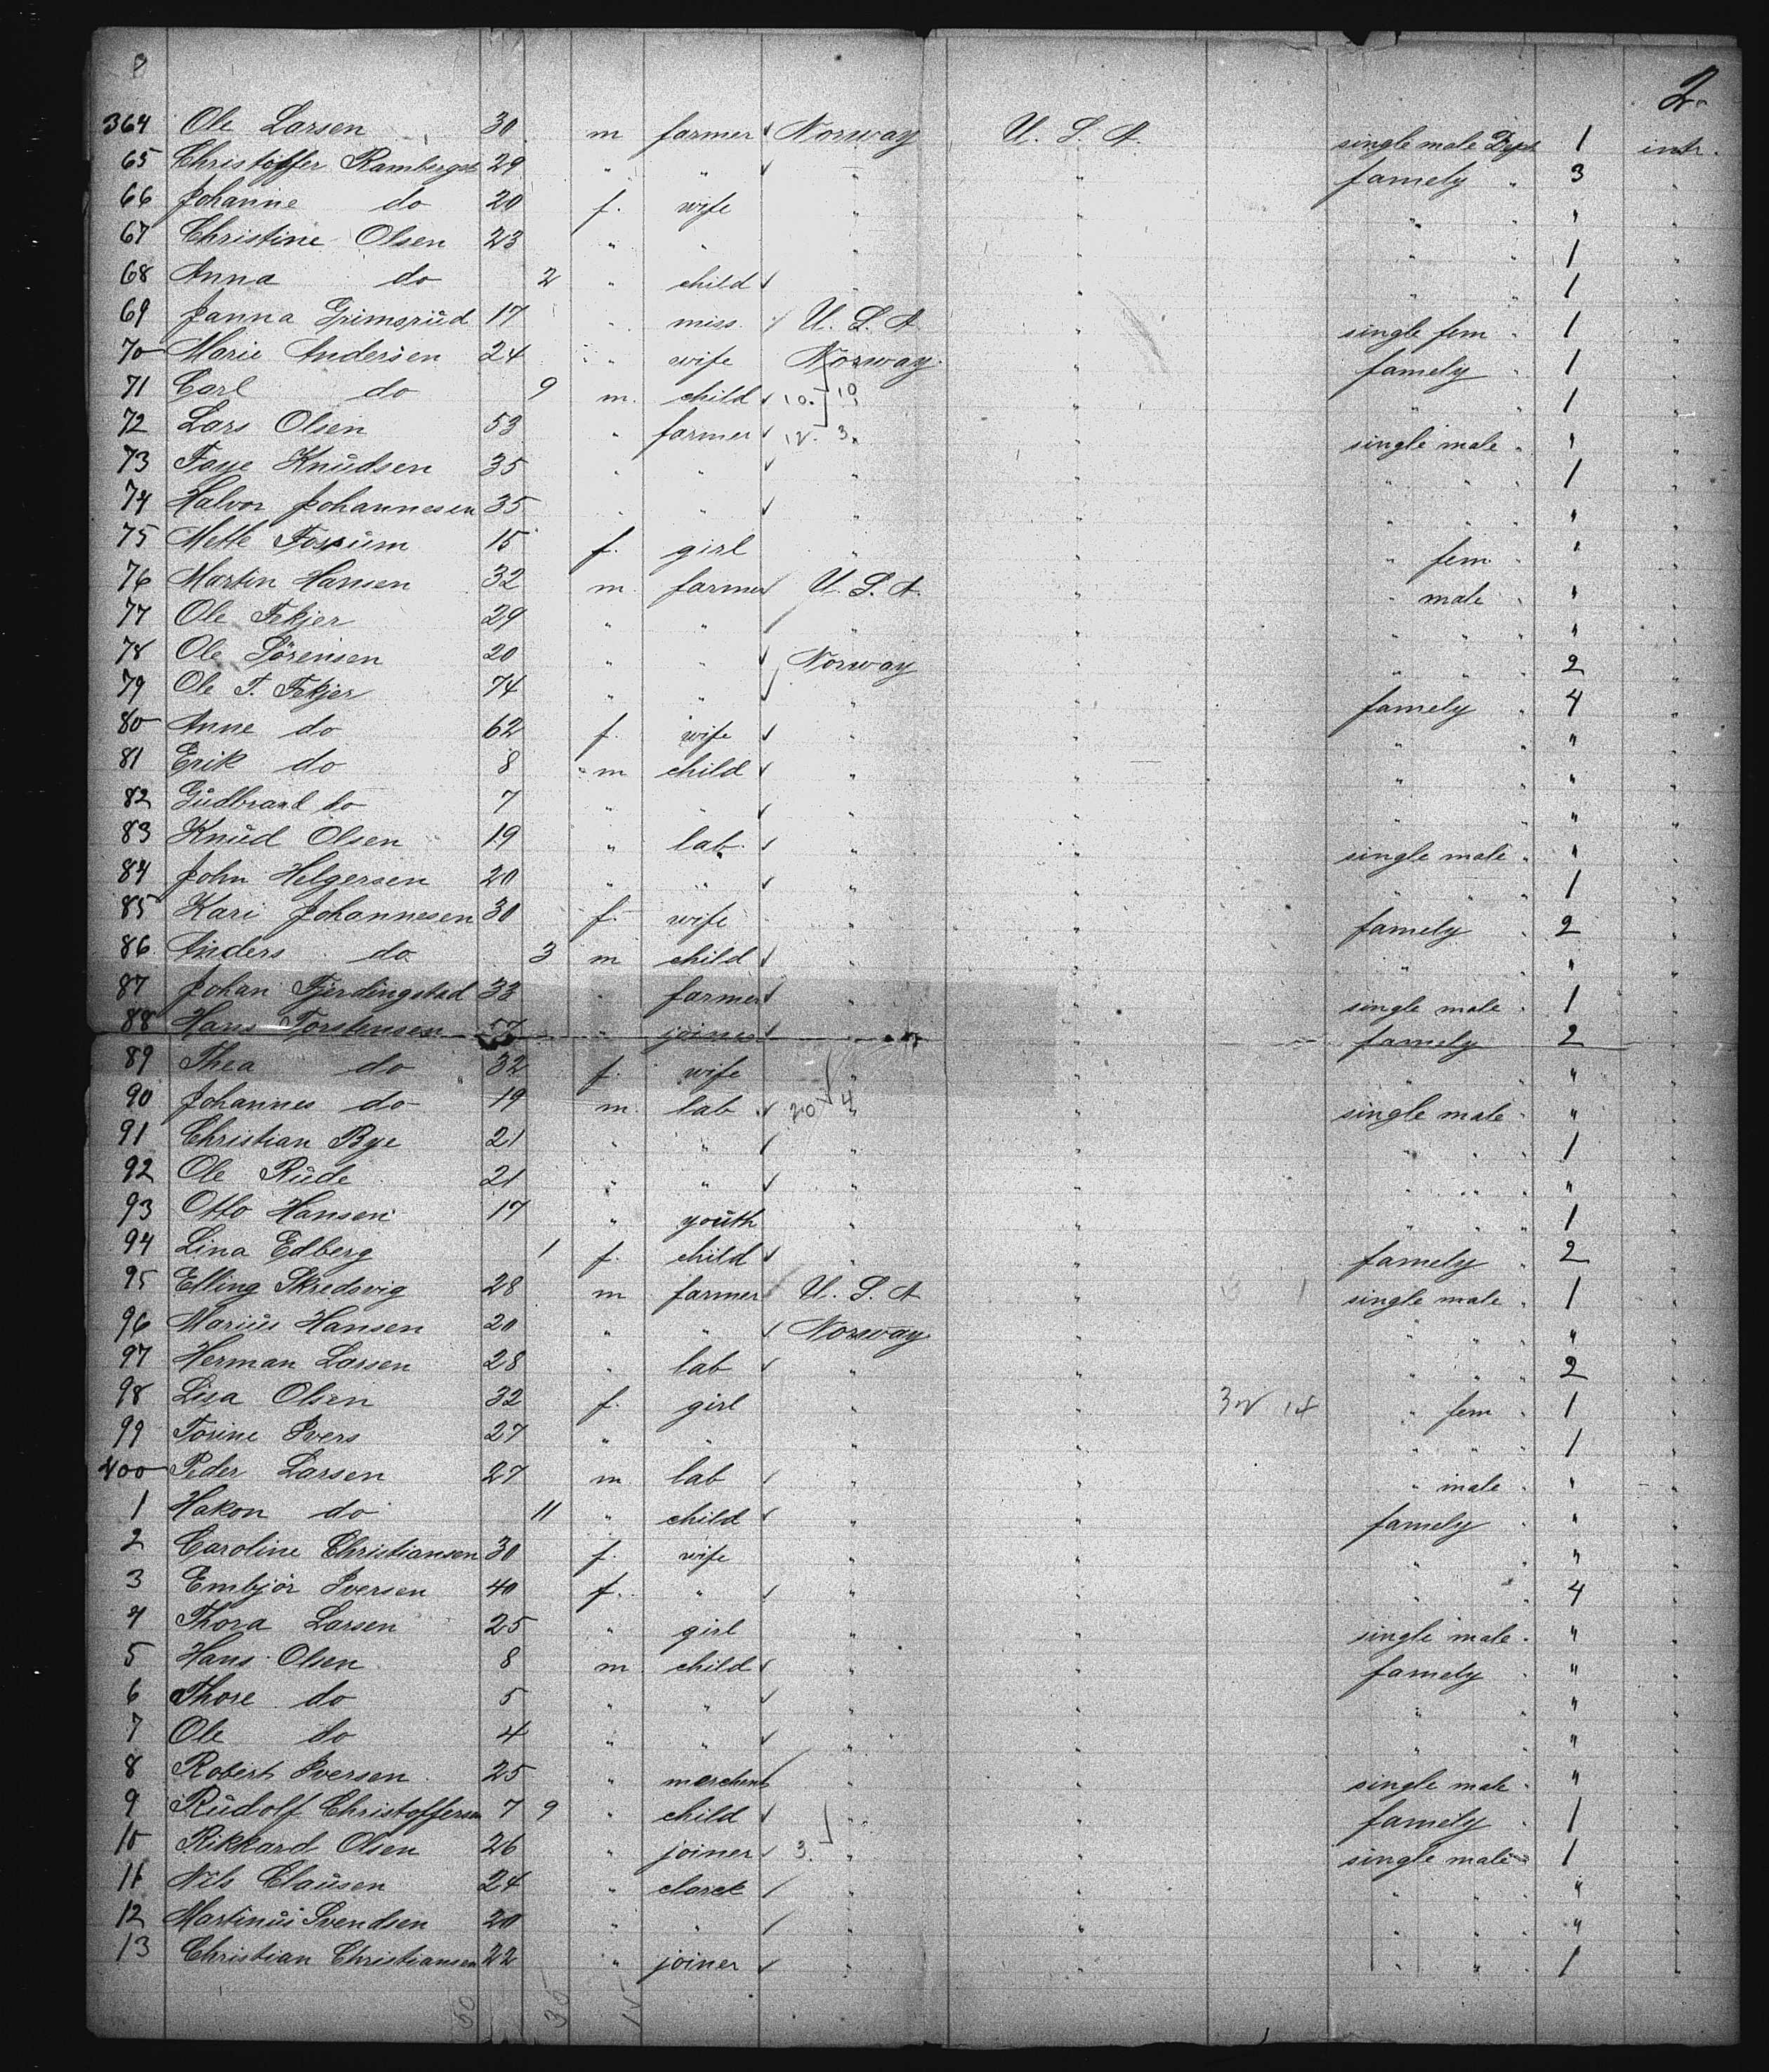 2.
364 Ole Larsen 30 m farmer Norway U. S. A. single male Dept 1 intr.
65 Christoffer Rambergst 29 " " " " famely " 3 "
66 Johanne do 20 f. wife " " " " " "
67 Christine Olsen 23 " " " " " " 1 "
68 Anna do 2 " child " " " 1 "
69 Janna Grimsrud 17 " miss. U. S. A " single fem " 1 "
70 Marie Andersen 24 " wife Norway " famely " 1 "
71 Carl do 9 m. child 10. 10 " " 1 "
72 Lars Olsen 53 " farmer 12. 3. " single male " " "
73 Faye Knudsen 35 " " " " " " " 1 "
74 Halvor Johannesen 35 " " " " " " " " "
75 Mette Fossum 15 f. girl " " " fem " " "
76 Martin Hansen 32 m. farmer U. S. A. " " male " " "
77 Ole Fekjer 29 " " " " " " " " "
78 Ole Sörensen 20 " " Norway " " " " 2 "
79 Ole T. Fekjer 74 " " " " famely " 4 "
80 Anne do 62 f. wife " " " " " "
81 Erik do 8 " m child " " " " " "
82 Gudbrand do 7 " " " " " " " "
83 Knud Olsen 19 " lab. " " single male " " "
84 John Helgersen 20 " " " " " " " 1 "
85 Kari Johannesen 30 f. wife " " famely " 2 "
86 Anders do 3 m child " " " " " "
87 Johan Fjerdingstad 33 " farmer " " single male " 1 "
88 Hans Torstensen 57 " joiner " " famely 2 "
89 Thea do 32 f. wife " " " " " "
90 Johannes do 19 m. lab 20 4 " " single male " " "
91 Christian Bye 21 " " " " " " " 1 "
92 Ole Rude 21 " " " " " " " " "
93 Otto Hansen 17 " youth " " " " " 1 "
94 Lina Edberg 1 f. child " " famely " 2 "
95 Elling Skredsvig 28 m farmer U. S. A " single male " 1 "
96 Marius Hansen 20 " " Norway " " " " " "
97 Herman Larsen 28 " lab " " " " " 2 "
98 Lisa Olsen 32 f. girl " " " fem " 1 "
99 Torine Ivers 27 " " " " " " " 1 "
400 Peder Larsen 27 m lab " " " male " " "
1 Hakon do 11 " child " " famely " " "
2 Caroline Christiansen 30 f. wife " " " " " "
3 Embjör Iversen 40 f. " " " " " 4 "
4 Thora Larsen 25 " girl " " single male " " "
5 Hans Olsen 8 m child " " famely " " "
6 Thore do 5 " " " " " " " "
7 Ole do 4 " " " " " " " "
8 Robert Iversen 25 " merchent " " single male " " "
9 Rudolf Christoffersen 7 9 " child " " famely " 1 "
10 Rikkard Olsen 26 " joiner 3. " " single male " 1 "
11 Nils Clausen 24 " clarck " " " " " " "
12 Martinus Svendsen 20 " " " " " " " " "
13 Christian Christiansen 22 " joiner " " " " " 1 "